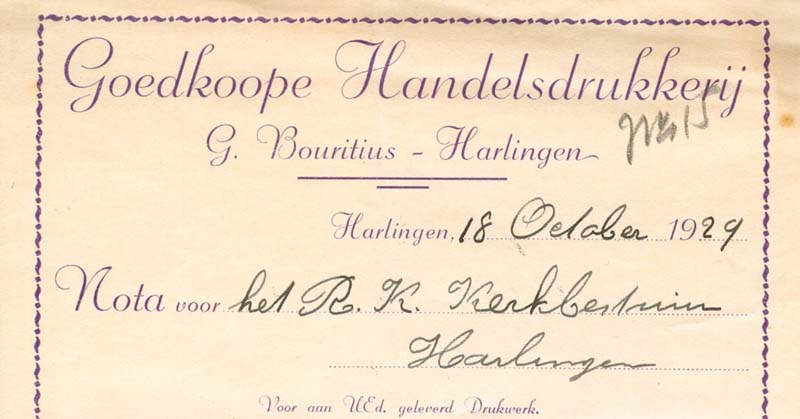 Goedkoope Handelsdrukkerij
G. Bouritius - Harlingen
Harlingen, 18 October 1929
Nota voor het R. K. Kerkbestuur
Harlingen
Voor aan UEd. geleverd Drukwerk.